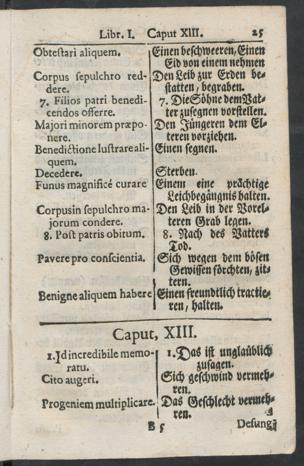 Libr. I. Caput XIII. 25
Obtestari aliquem.
Einen beschweeren, Einen
Eid von einem nehmen
Corpus sepulchro red-
dere.
Den Leib zur Erden be-
statten, begraben.
7. Filios patri benedi-
cendos offerre.
7. Die Söhne dem Vat-
ter zusegnen vorstellen.
Majori minorem præpo-
nere.
Den Jüngeren dem El-
teren vorziehen.
Benedictione lustrare ali-
quem.
Einen segnen.
Decedere.
Sterben.
Funus magnificé curare
Einem eine prächtige
Leichbegängnis halten.
Corpus in sepulchro ma-
jorum condere.
Den Leib in der Vorel-
teren Grab legen.
8. Post patris obitum.
8. Nach des Vatters
Tod.
Pavere pro conscientia.
Sich wegen dem bösen
Gewissen förchten, zit-
tern.
Benigne aliquem habere
Einen freundlich tractie-
ren, halten.
Caput, XIII.
1. Id incredibile memo-
ratu.
1. Das ist unglaüblich
zusagen.
Cito augeri.
Sich geschwind vermeh-
ren.
Progeniem multiplicare.
Das Geschlecht vermeh-
ren.
B 5